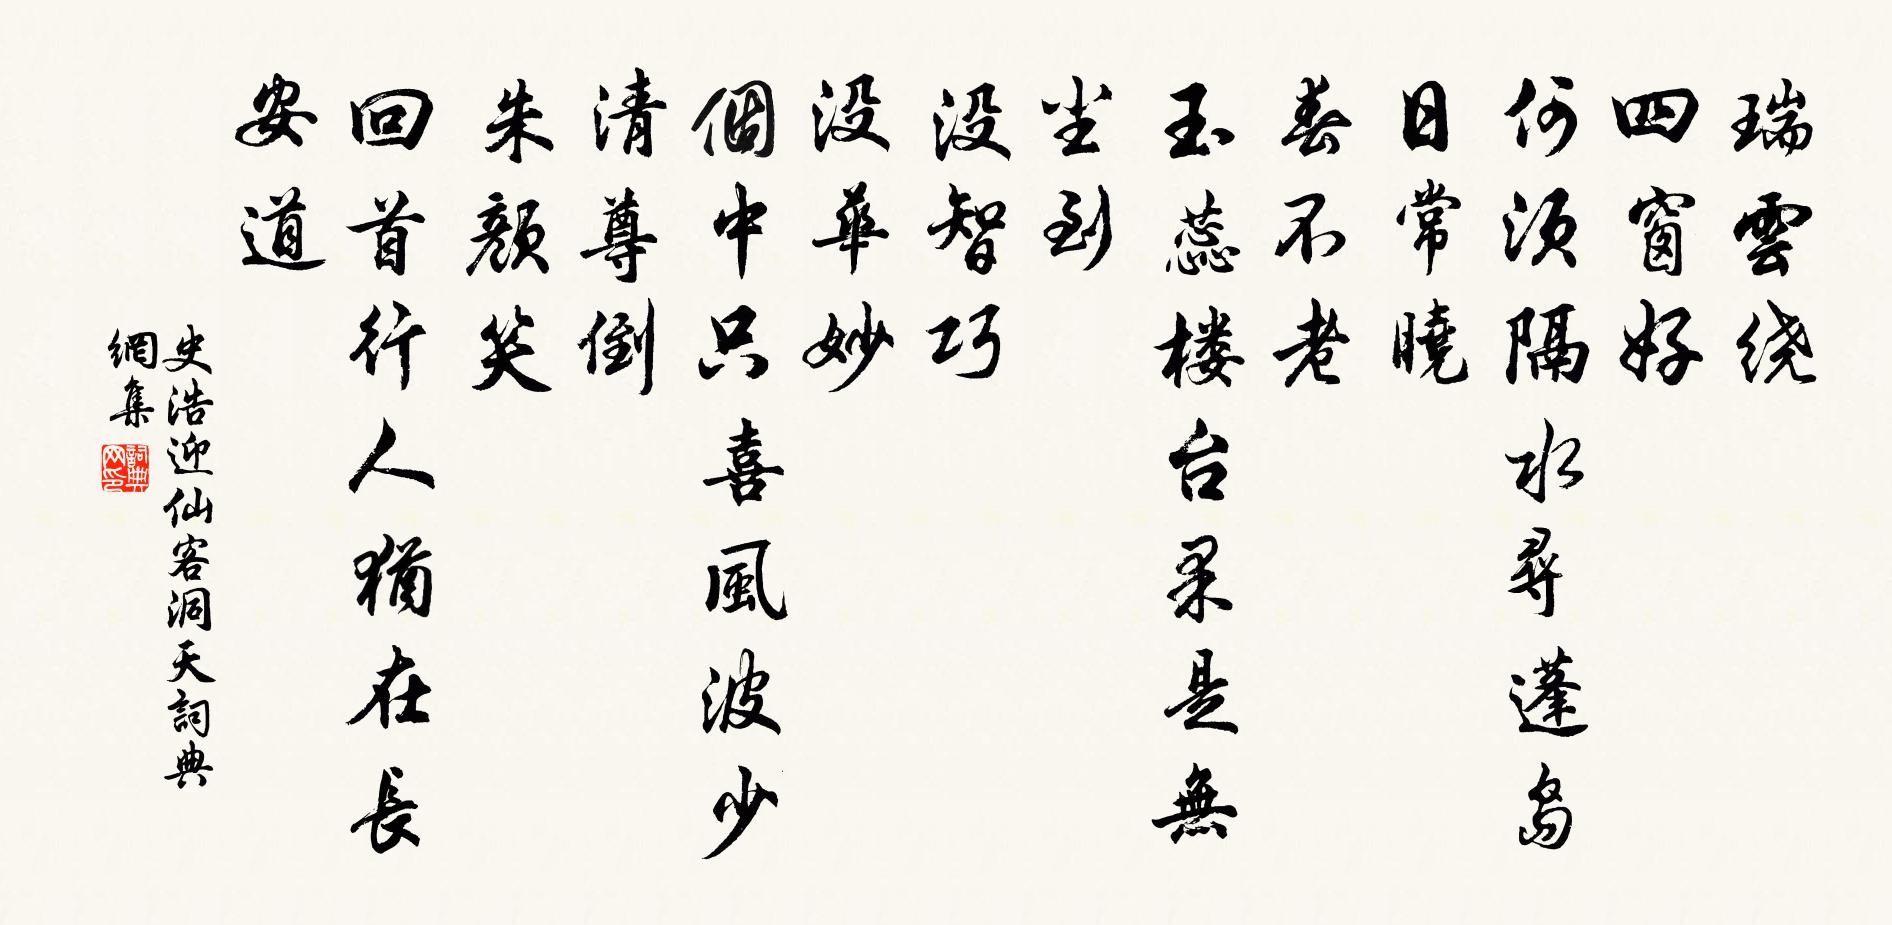 瑞雲绕
四窗好
何须隔水尋蓬島
日常曉
春不老
玉蕊楼台果是無
尘到
没智巧
没華妙
個中只喜風波少
清尊倒
朱颜笑
回首行人猶在長
安道
史浩迎仙客洞天詞典
網集
詞典
网印